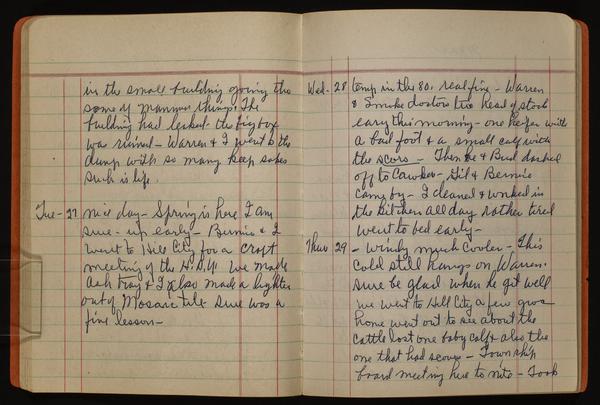 in the small building going thru
some of Mammas things. The
building had leaked the big box
was ruined - Warren & I went to the
dump with so many keep sakes
such is life.
Tue - 27 nice day - Spring is here I am
sure - up early - Bernice & I
went to Hill City for a craft
meeting of the H.D.U. we made
ash tray & I also made a lighter
out of Mosaic tile sure was a
fine lesson -
Wed - 28 temp in the 80s. real fine - Warren
& Smoke doctors two head of stock
early this morning - one heifer with
a bad foot & a small calf with
the scours - Then he & Bud dashed
off to Cawker - Gil & Bernice
came by - I cleaned & worked in
the kitchen all day rather tired
went to bed early -
Thur 29 - windy much cooler - This
cold still hangs on Warren.
sure be glad when he get well
we went to Hill City a few groc
home went out to see about the
cattle lost one baby calf & also the
one that had scours - Township
board meeting here to nite - Took